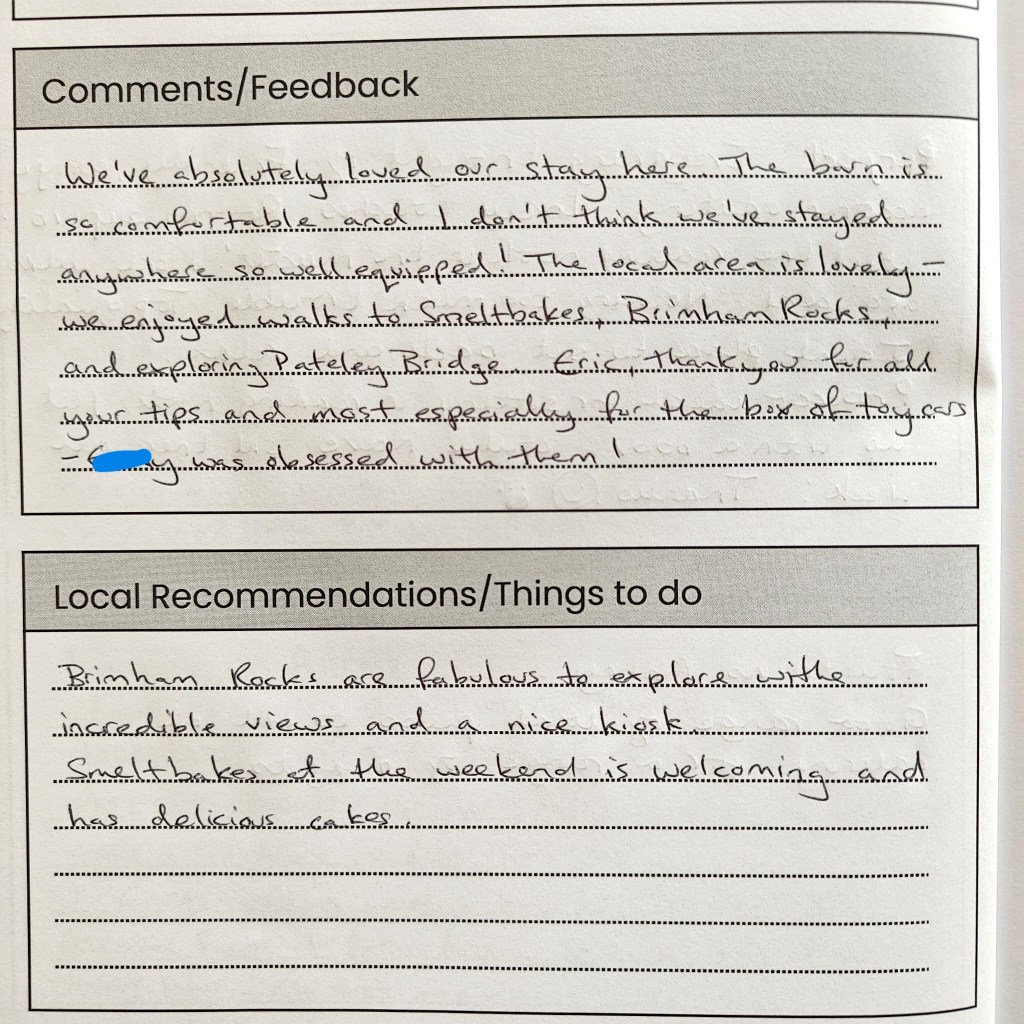 Comments/Feedback
We've absolutely loved our stay here. The barn is
so comfortable and I don't think we've stayed
anywhere so well equipped! The local area is lovely -
we enjoyed walks to Smeltbakes, Brimham Rocks,
and exploring Pateley Bridge. Eric, thank you for all
your tips and most especially for the box of toy cars
- was obsessed with them!
Local Recommendations/Things to do
Brimham Rocks are fabulous to explore withe
incredible views and a nice kiosk.
Smeltbakes at the weekend is welcoming and
has delicious cakes.